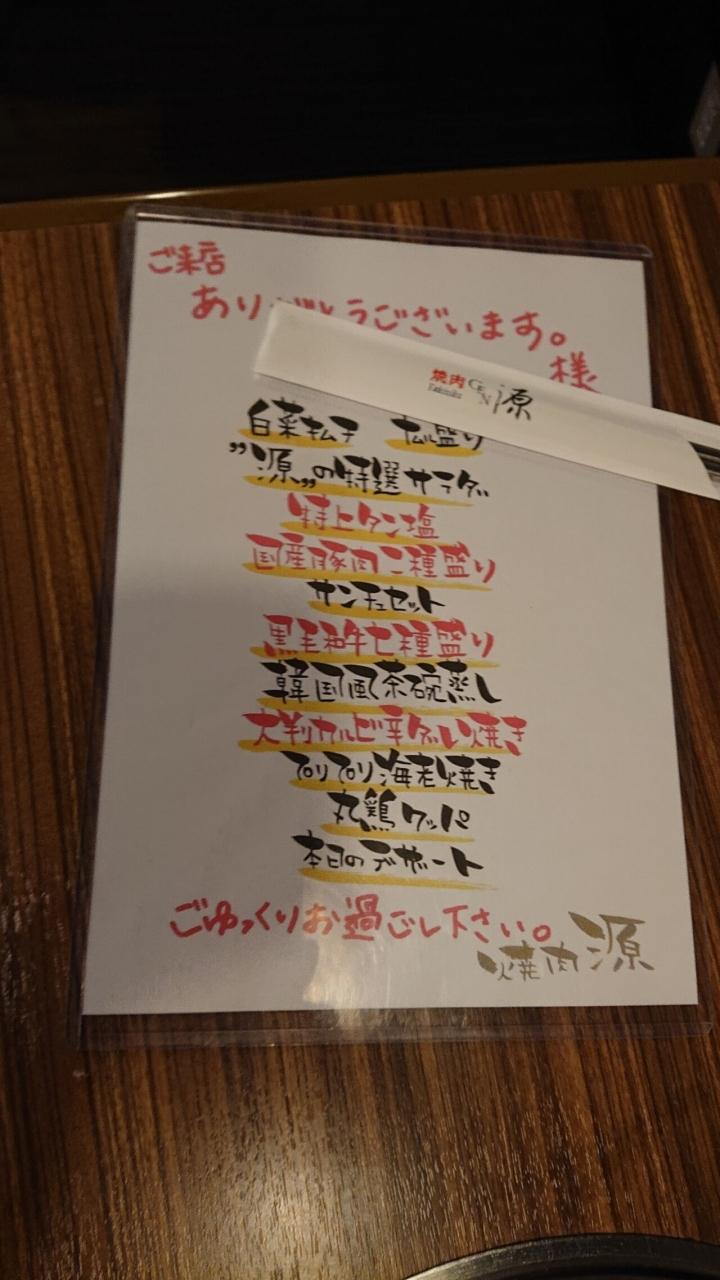 ご来店
ありがとうございます。
様
焼肉 GEN 源
Yakiniku
白菜キムチ 盛り
"源"の特選サラダ
特上タン塩
国産豚肉二種盛り
サンチュセット
黒毛和牛七種盛り
韓国風茶碗蒸し
大判カルビ辛ダレ焼き
プリプリ海老焼き
丸鶏クッパ
本日のデザート
ごゆっくりお過ごし下さい。
焼肉 源